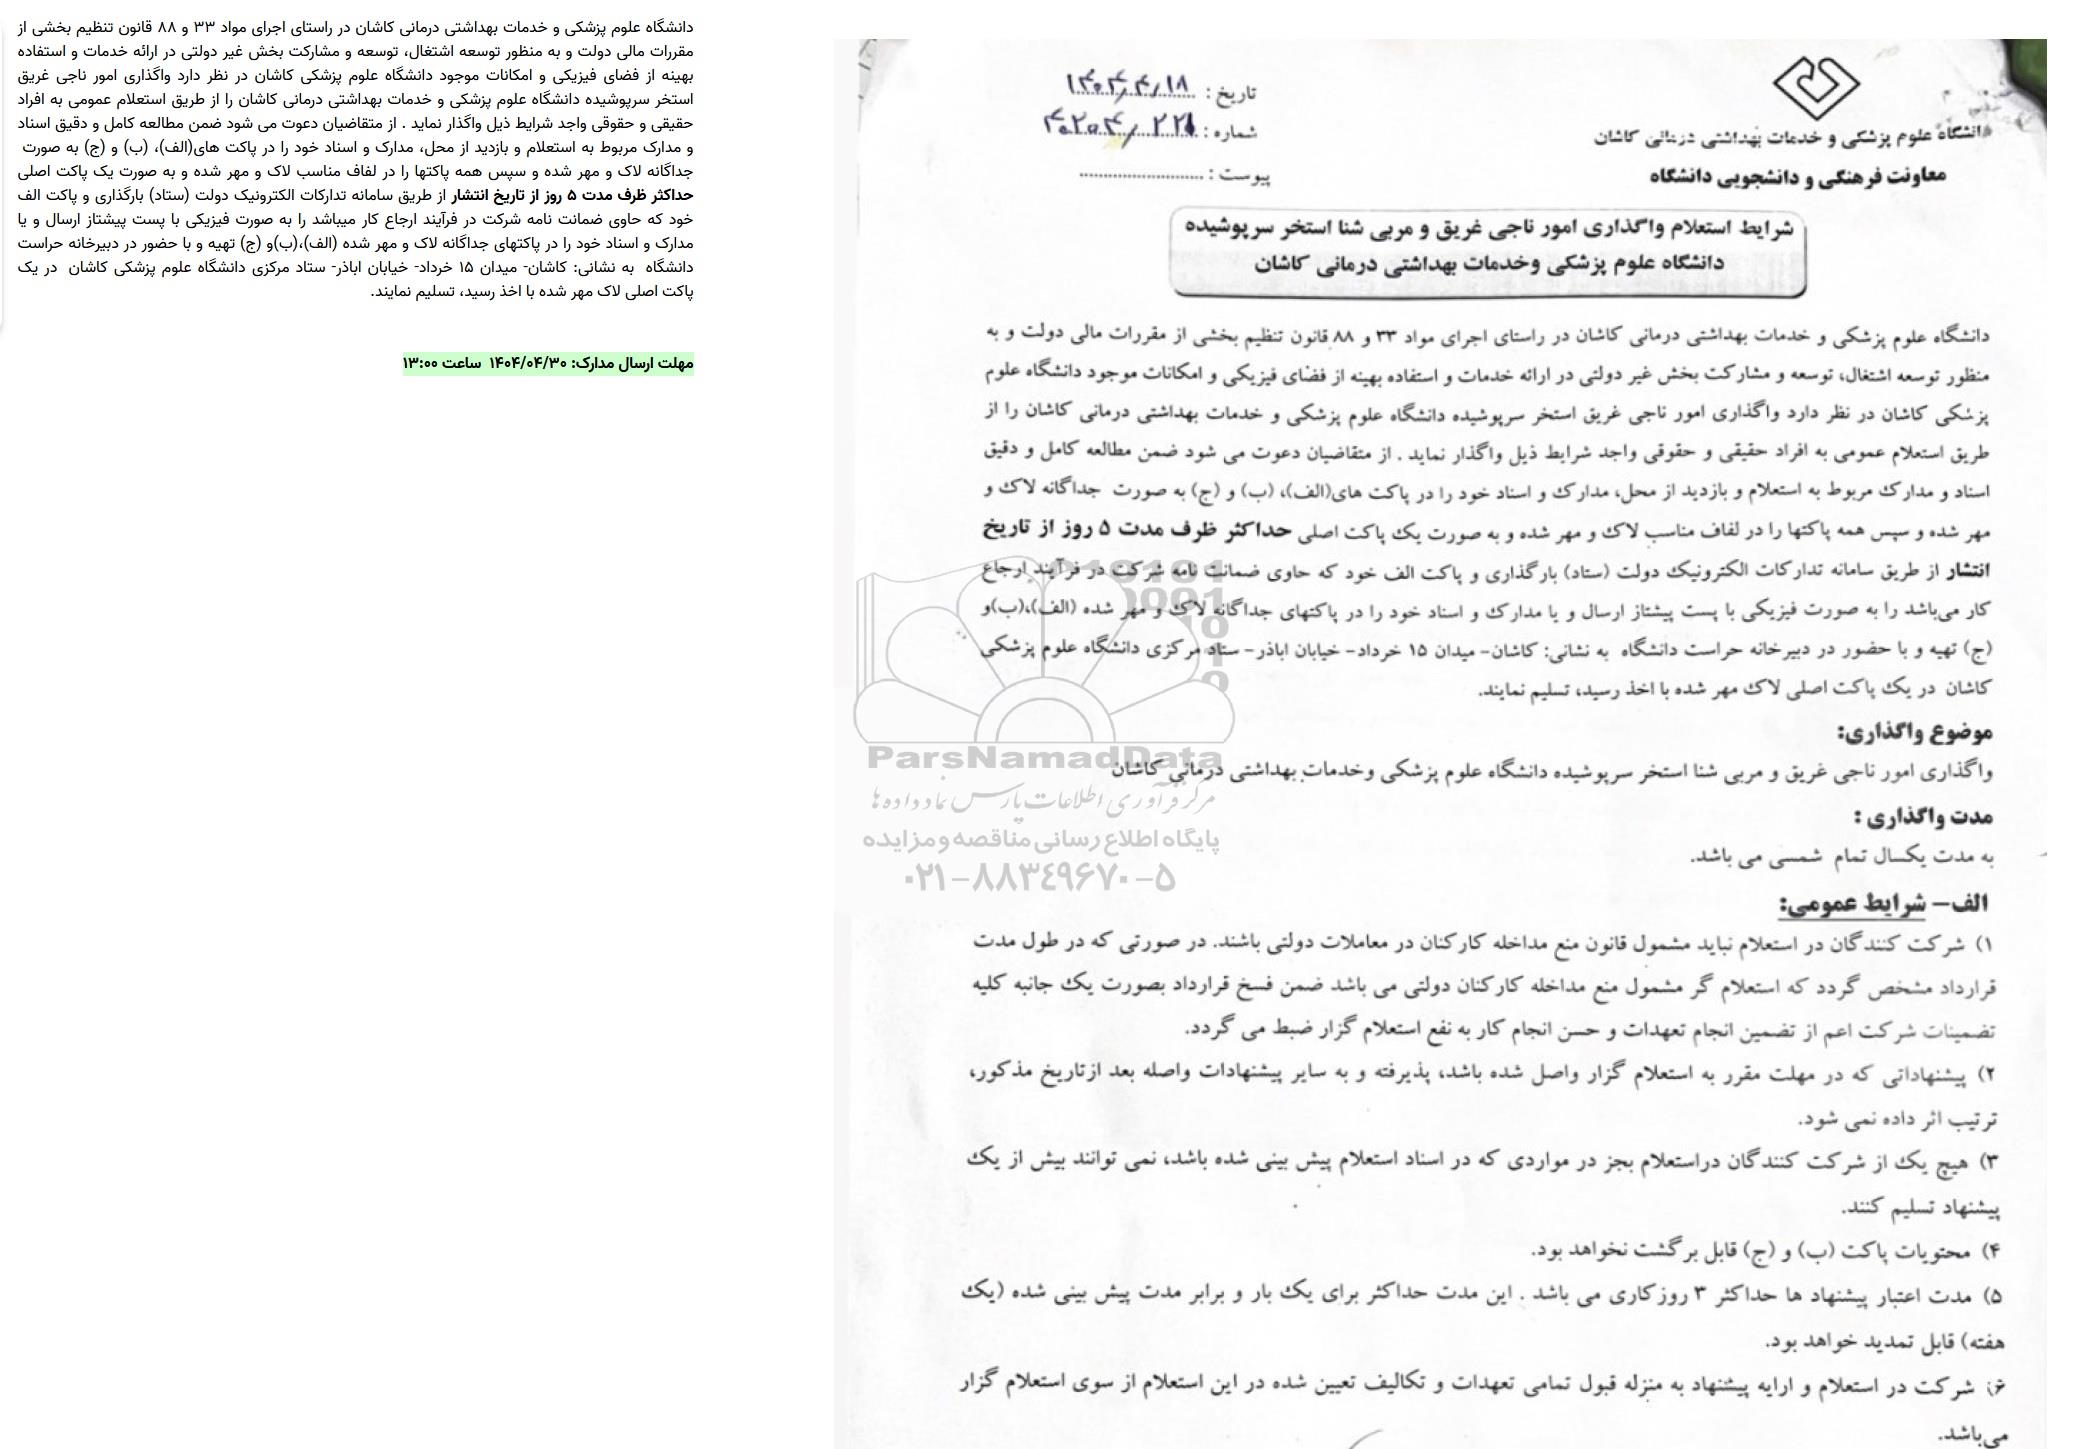 دانشگاه علوم پزشکی و خدمات بهداشتی درمانی کاشان در راستای اجرای مواد ۳۳ و ۸۸ قانون تنظیم بخشی از
مقررات مالی دولت و به منظور توسعه اشتغال، توسعه و مشارکت بخش غیر دولتی در ارائه خدمات و استفاده
بهینه از فضای فیزیکی و امکانات موجود دانشگاه علوم پزشکی کاشان در نظر دارد واگذاری امور ناجی غریق
استخر سرپوشیده دانشگاه علوم پزشکی و خدمات بهداشتی درمانی کاشان را از طریق استعلام عمومی به افراد
حقیقی و حقوقی واجد شرایط ذیل واگذار نماید . از متقاضیان دعوت می شود ضمن مطالعه کامل و دقیق اسناد
و مدارک مربوط به استعلام و بازدید از محل، مدارک و اسناد خود را در پاکت های(الف)، (ب) و (ج) به صورت
جداگانه لاک و مهر شده و سپس همه پاکتها را در لفاف مناسب لاک و مهر شده و به صورت یک پاکت اصلی
حداکثر ظرف مدت ۵ روز از تاریخ انتشار از طریق سامانه تدارکات الکترونیک دولت (ستاد) بارگذاری و پاکت الف
خود که حاوی ضمانت نامه شرکت در فرآیند ارجاع کار میباشد را به صورت فیزیکی با پست پیشتاز ارسال و یا
مدارک و اسناد خود را در پاکتهای جداگانه لاک و مهر شده (الف)،(ب)و (ج) تهیه و با حضور در دبیرخانه حراست
دانشگاه به نشانی: کاشان- میدان ۱۵ خرداد- خیابان اباذر- ستاد مرکزی دانشگاه علوم پزشکی کاشان در یک
پاکت اصلی لاک مهر شده با اخذ رسید، تسلیم نمایند.
مهلت ارسال مدارک: ۱۴۰۴/۰۴/۳۰ ساعت ۱۳:۰۰
دانشگاه علوم پزشکی و خدمات بهداشتی درمانی کاشان
معاونت فرهنگی و دانشجویی دانشگاه
تاریخ : ۱۴۰۴/۴/۱۸
شماره :
پیوست :
شرایط استعلام واگذاری امور ناجی غریق و مربی شنا استخر سرپوشیده
دانشگاه علوم پزشکی وخدمات بهداشتی درمانی کاشان
دانشگاه علوم پزشکی و خدمات بهداشتی درمانی کاشان در راستای اجرای مواد ۳۳ و ۸۸ قانون تنظیم بخشی از مقررات مالی دولت و به
منظور توسعه اشتغال، توسعه و مشارکت بخش غیر دولتی در ارائه خدمات و استفاده بهینه از فضای فیزیکی و امکانات موجود دانشگاه علوم
پزشکی کاشان در نظر دارد واگذاری امور ناجی غریق استخر سرپوشیده دانشگاه علوم پزشکی و خدمات بهداشتی درمانی کاشان را از
طریق استعلام عمومی به افراد حقیقی و حقوقی واجد شرایط ذیل واگذار نماید . از متقاضیان دعوت می شود ضمن مطالعه کامل و دقیق
اسناد و مدارک مربوط به استعلام و بازدید از محل، مدارک و اسناد خود را در پاکت های(الف)، (ب) و (ج) به صورت جداگانه لاک و
مهر شده و سپس همه پاکتها را در لفاف مناسب لاک و مهر شده و به صورت یک پاکت اصلی حداکثر ظرف مدت ۵ روز از تاریخ
انتشار از طریق سامانه تدارکات الکترونیک دولت (ستاد) بارگذاری و پاکت الف خود که حاوی ضمانت نامه شرکت در فرآیند ارجاع
کار می‌باشد را به صورت فیزیکی با پست پیشتاز ارسال و یا مدارک و اسناد خود را در پاکتهای جداگانه لاک و مهر شده (الف)،(ب)و
(ج) تهیه و با حضور در دبیرخانه حراست دانشگاه به نشانی: کاشان- میدان ۱۵ خرداد- خیابان اباذر- ستاد مرکزی دانشگاه علوم پزشکی
کاشان در یک پاکت اصلی لاک مهر شده با اخذ رسید، تسلیم نمایند.
موضوع واگذاری:
واگذاری امور ناجی غریق و مربی شنا استخر سرپوشیده دانشگاه علوم پزشکی وخدمات بهداشتی درمانی کاشان
مدت واگذاری :
به مدت یکسال تمام شمسی می باشد.
ParsNamadData
مرکز فرآوری اطلاعات پارس نماد داده ها
پایگاه اطلاع رسانی مناقصه و مزایده
۰۲۱-۸۸۳۴۹۶۷۰-۵
الف- شرایط عمومی:
۱) شرکت کنندگان در استعلام نباید مشمول قانون منع مداخله کارکنان در معاملات دولتی باشند. در صورتی که در طول مدت
قرارداد مشخص گردد که استعلام گر مشمول منع مداخله کارکنان دولتی می باشد ضمن فسخ قرارداد بصورت یک جانبه کلیه
تضمینات شرکت اعم از تضمین انجام تعهدات و حسن انجام کار به نفع استعلام گزار ضبط می گردد.
۲) پیشنهاداتی که در مهلت مقرر به استعلام گزار واصل شده باشد، پذیرفته و به سایر پیشنهادات واصله بعد ازتاریخ مذکور،
ترتیب اثر داده نمی شود.
۳) هیچ یک از شرکت کنندگان دراستعلام بجز در مواردی که در اسناد استعلام پیش بینی شده باشد، نمی توانند بیش از یک
پیشنهاد تسلیم کنند.
۴) محتویات پاکت (ب) و (ج) قابل برگشت نخواهد بود.
۵) مدت اعتبار پیشنهاد ها حداکثر ۳ روزکاری می باشد . این مدت حداکثر برای یک بار و برابر مدت پیش بینی شده (یک
هفته) قابل تمدید خواهد بود.
۶) شرکت در استعلام و ارایه پیشنهاد به منزله قبول تمامی تعهدات و تکالیف تعیین شده در این استعلام از سوی استعلام گزار
می‌باشد.